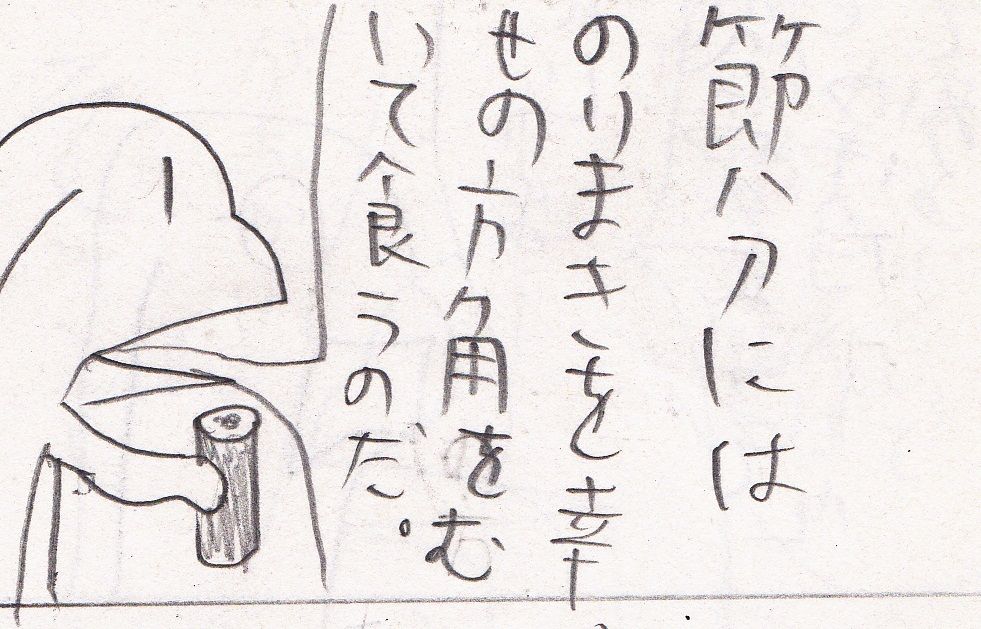 節分には
のりまきを幸
せの方角をむ
いて食うのだ。